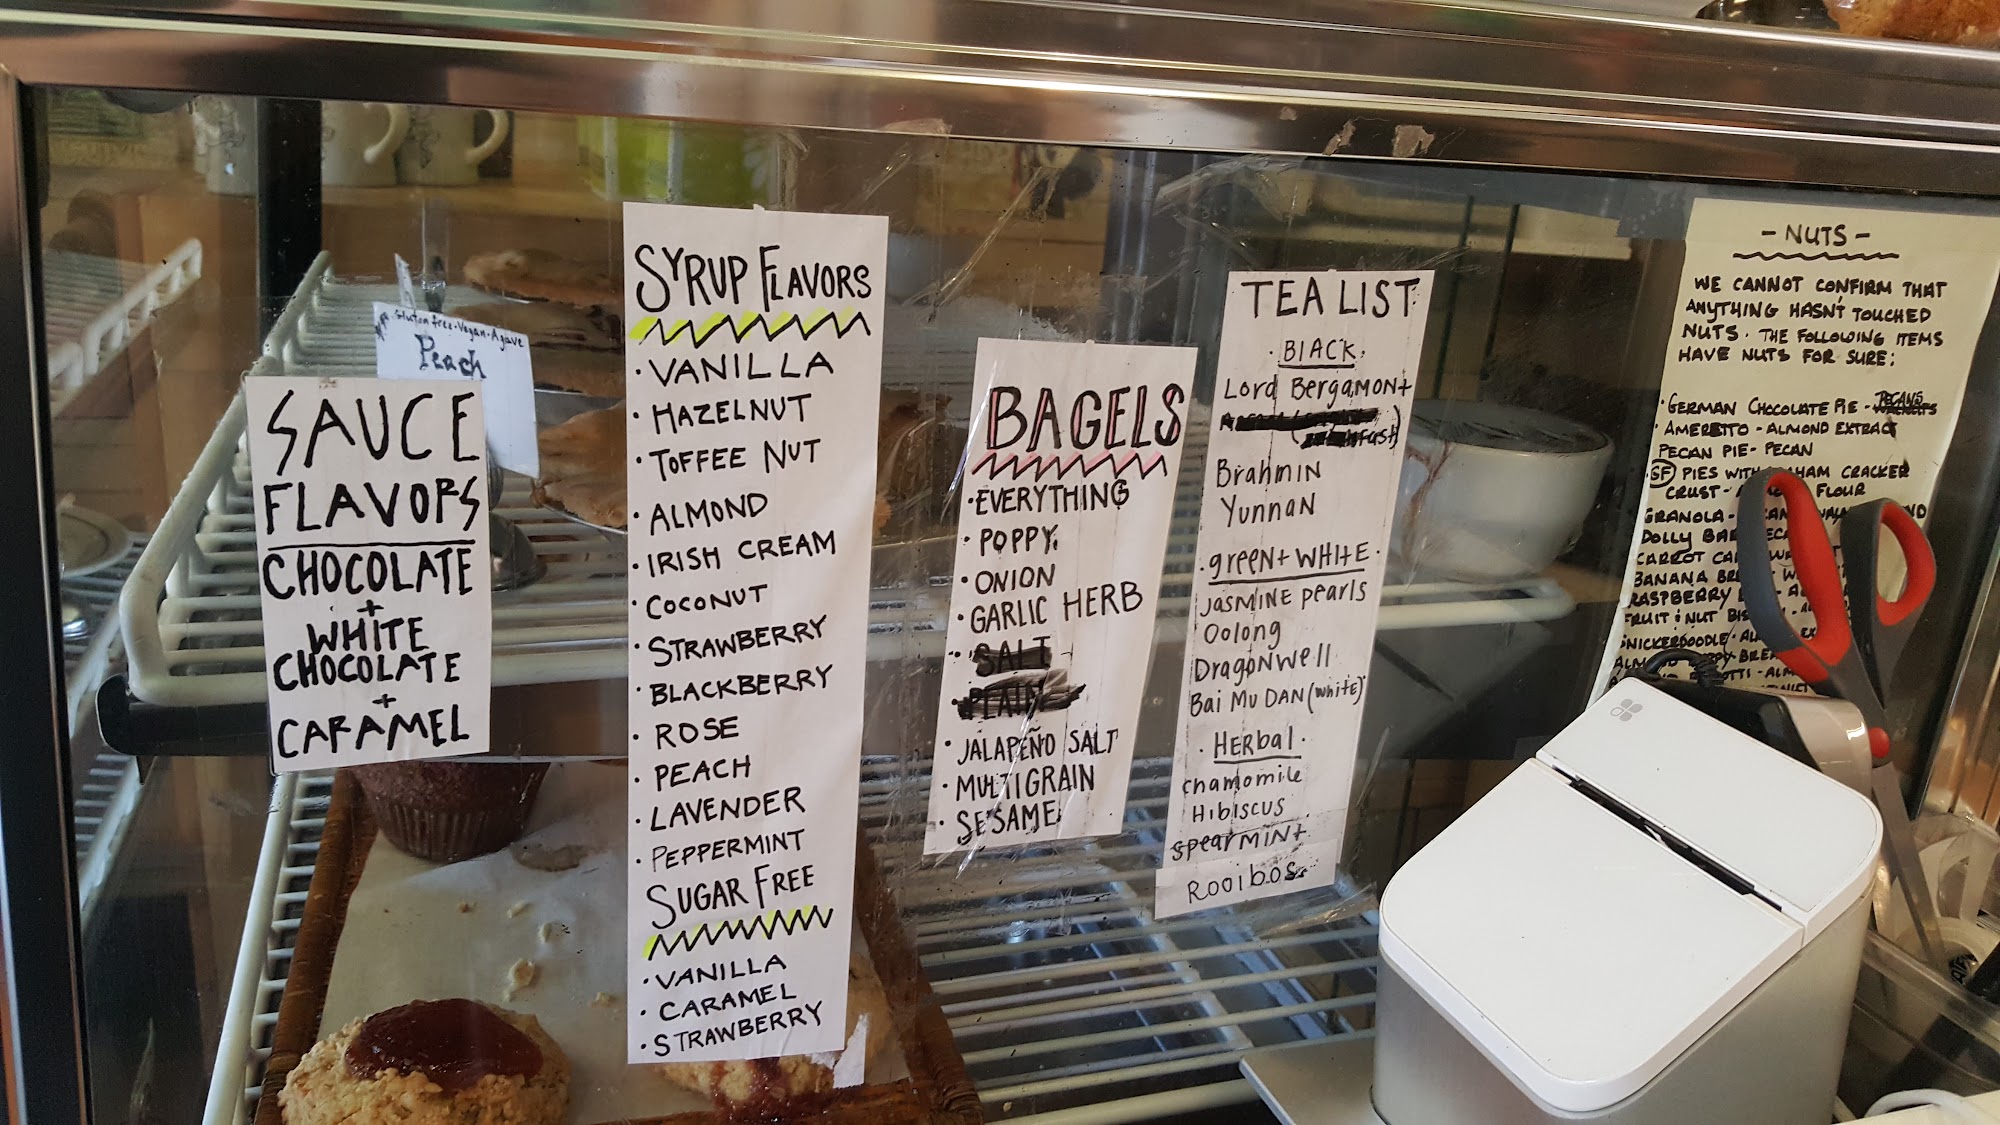 SAUCE
FLAVORS
CHOCOLATE
+
WHITE
CHOCOLATE
+
CARAMEL
Gluten free · Vegan · Agave
Peach
SYRUP FLAVORS
· VANILLA
· HAZELNUT
· TOFFEE NUT
· ALMOND
· IRISH CREAM
· COCONUT
· STRAWBERRY
· BLACKBERRY
· ROSE
· PEACH
· LAVENDER
· PEPPERMINT
SUGAR FREE
· VANILLA
· CARAMEL
· STRAWBERRY
BAGELS
· EVERYTHING
· POPPY
· ONION
· GARLIC HERB
· SALT
· PLAIN
· JALAPEÑO SALT
· MULTIGRAIN
· SESAME
TEA LIST
· BlACK ·
Lord Bergamont
Brahmin
Yunnan
· green + WHITE ·
Jasmine pearls
Oolong
Dragonwell
Bai Mu Dan (white)
· HERbal ·
chamomile
Hibiscus
spearmint
Rooibos
- NUTS -
WE CANNOT CONFIRM THAT
ANYTHING HASN'T TOUCHED
NUTS. THE FOLLOWING ITEMS
HAVE NUTS FOR SURE:
· GERMAN CHOCOLATE PIE - PECANS
· AMERETTO - ALMOND EXTRACT
PECAN PIE - PECAN
· GF PIES WITH CRACKER
CRUST - FLOUR
GRANOLA -
DOLLY
CARROT
BANANA
RASPBERRY
FRUIT & NUT
SNICKERDOODLE -